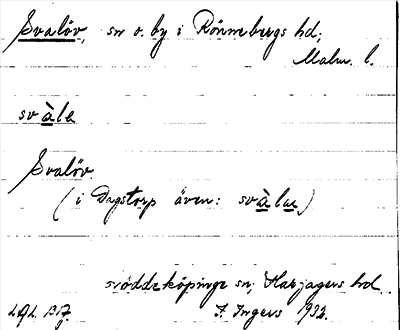 Svalöv, sn o. by i Rönnebergs hd;
Malm. l.
svàle
Svalöv
(i Dagstorp även: svàlu)
nöddeköpinge sn, Harjagers hd
I. Ingers 1932.